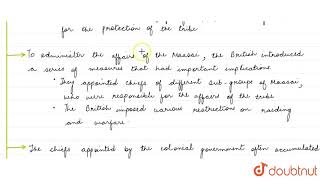 for the protection of the tribe
→ To administer the affairs of the Maasai, the British introduced
a series of measures that had important implications
• They appointed chiefs of different sub-groups of Maasai,
who were responsible for the affairs of the tribe
• The British imposed various restriction on raiding
and warfare
→ The chiefs appointed by the colonial government often accumulated
doubtnut